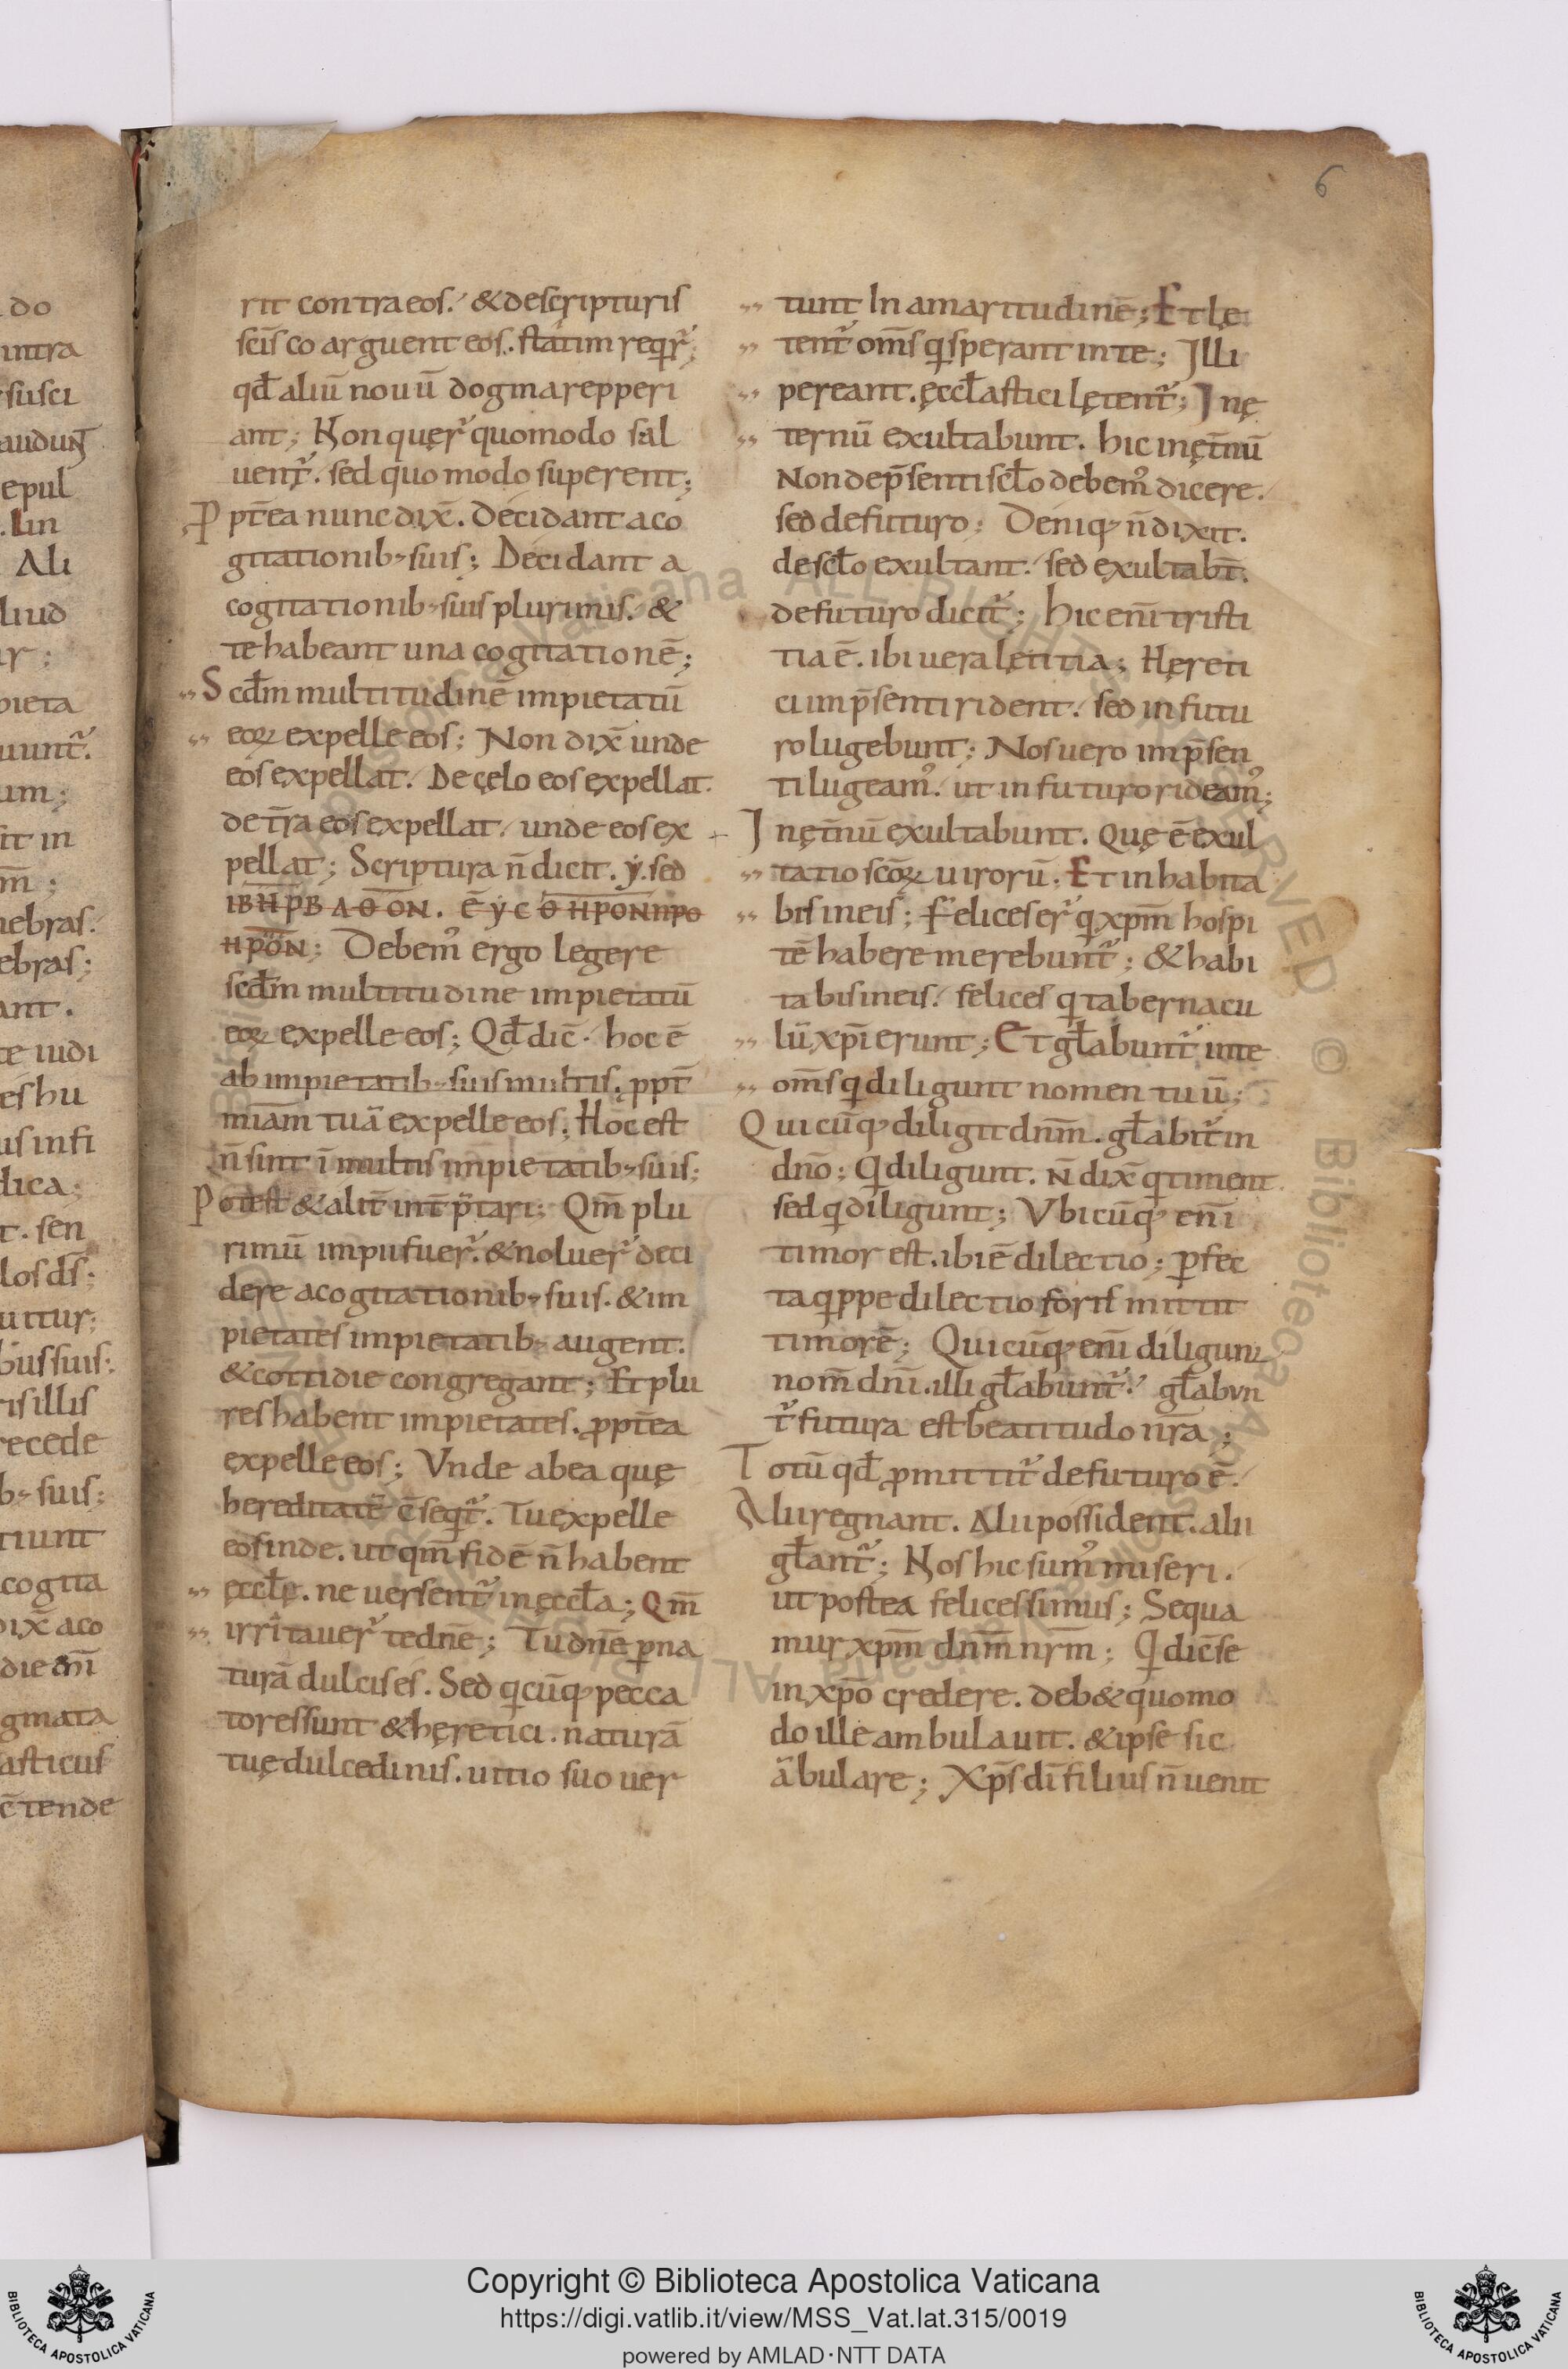 6
rit contraeos. &descripturis
scīs co arguent eos. statim reqr̄;
qđ aliū nouū dogma repperi
ant; Non quęr̄ quomodo sal
uent̄. sed quo modo superent;
Ppt̄ea nunc dix̄. Decidant a co
gitationib; suis; Decidant a
cogitationib; suis plurimis. &
te habeant una cogitationē;
Scđm multitudinē impietatū
eoꝝ expelle eos; Non dix̄ unde
eos expellat. De cęlo eos expellat.
de t̄ra eos expellat. unde eos ex
pellat; Scriptura n̄ dicit. y. sed
Debem' ergo legere
scđm multitudine impietatū
eoꝝ expelle eos; Qđ dic̄. hoc ē
ab impietatib; suis multis. ppt̄
miam̄ tuā expelle eos; Hoc est
n̄ sint ī multis impietatib; suis;
Potest & alit̄ int̄p̄tari; Qm̄ plu
rimū impii fuer̄. & noluer̄ deci
dere a cogitationib; suis. & im
pietates impietatib; augent.
& cottidie congregant; Et plu
res habent impietates. ꝓpt̄ea
expelle eos; Vnde ab ea quę
hereditatē c̄seqt̄. Tu expelle
eos inde. ut qm̄ fidē n̄ habent
ęccłę. ne uersent̄ in ęccła; Qm̄
irritauer̄ te dnē; Tu dnē ꝑ na
turā dulcis es. Sed qicūq; pecca
tores sunt & hęretici. naturā
tuę dulcedinis. uitio suo uer
tunt In amaritudinē; Et lę
tent̄ oms̄ qi sperant in te; Illi
pereant. ęccłastici lętent̄; In ę
ternū exultabunt. hic in ęt̄nū
Non de p̄senti scło debem' dicere.
sed de futuro; Deniq; n̄ dixit.
de scło exultant. sed exultabt̄.
de futuro dicit̄; Hic eni̅ tristi
tia ē. ibi uera lętitia; Hęreti
ci imp̄senti rident. sed in futu
ro lugebunt; Nos uero imp̄sen
ti lugeam'. ut in futuro rideam';
In ęt̄nū exultabunt. Quę ē exul
tatio scōꝝ uirorū; Et inhabita
bis in eis; Felices er̄ qi xpm̄ hospi
tē habere merebunt̄; & habi
tabis in eis. felices qi tabernacu
lū xpī erunt; Et głabunt̄ in te
oms̄ qi diligunt nomen tuū;
Quicūq; diligit dnm̄. głabit̄ in
dnō; Qi diligunt. N̄ dix̄ qi timent.
sed qi diligunt; Vbicūq; eni̅
timor est. ibi ē dilectio; ꝑfec
ta qippe dilectio foris mittit
timorē; Quicūq; eni̅ diligunt
nom̄ dnī. illi głabunt̄. głabvn
t̄ futura est beatitudo nr̄a;
Totū qđ ꝓmittit̄ de futuro ē.
Alii regnant. Alii possident. alii
głant̄; Nos hic sum' miseri.
ut postea felicessimus; Sequa
mur xpm̄ dnm̄ nrm̄; Qi dic̄ se
in xpō credere. deb& quomo
do ille ambulauit. & ipse sic
ābulare; Xps̄ dī filius n̄ uenit
Copyright © Biblioteca Apostolica Vaticana
https://digi.vatlib.it/view/MSS_Vat.lat.315/0019
powered by AMLAD·NTT DATA
BIBLIOTECA APOSTOLICA VATICANA
BIBLIOTECA APOSTOLICA VATICANA